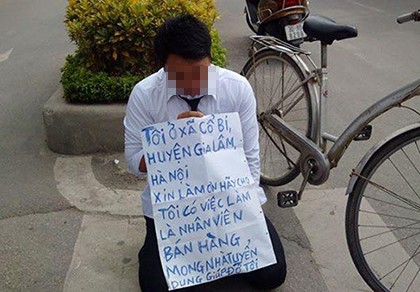 TÔI Ở XÃ CỔ BI,
HUYỆN GIA LÂM,
HÀ NỘI
XIN LÀM ƠN HÃY CHO
TÔI CÓ VIỆC LÀM
LÀ NHÂN VIÊN
BÁN HÀNG
MONG NHÀ TUYỂN
DỤNG GIÚP ĐỠ TÔI